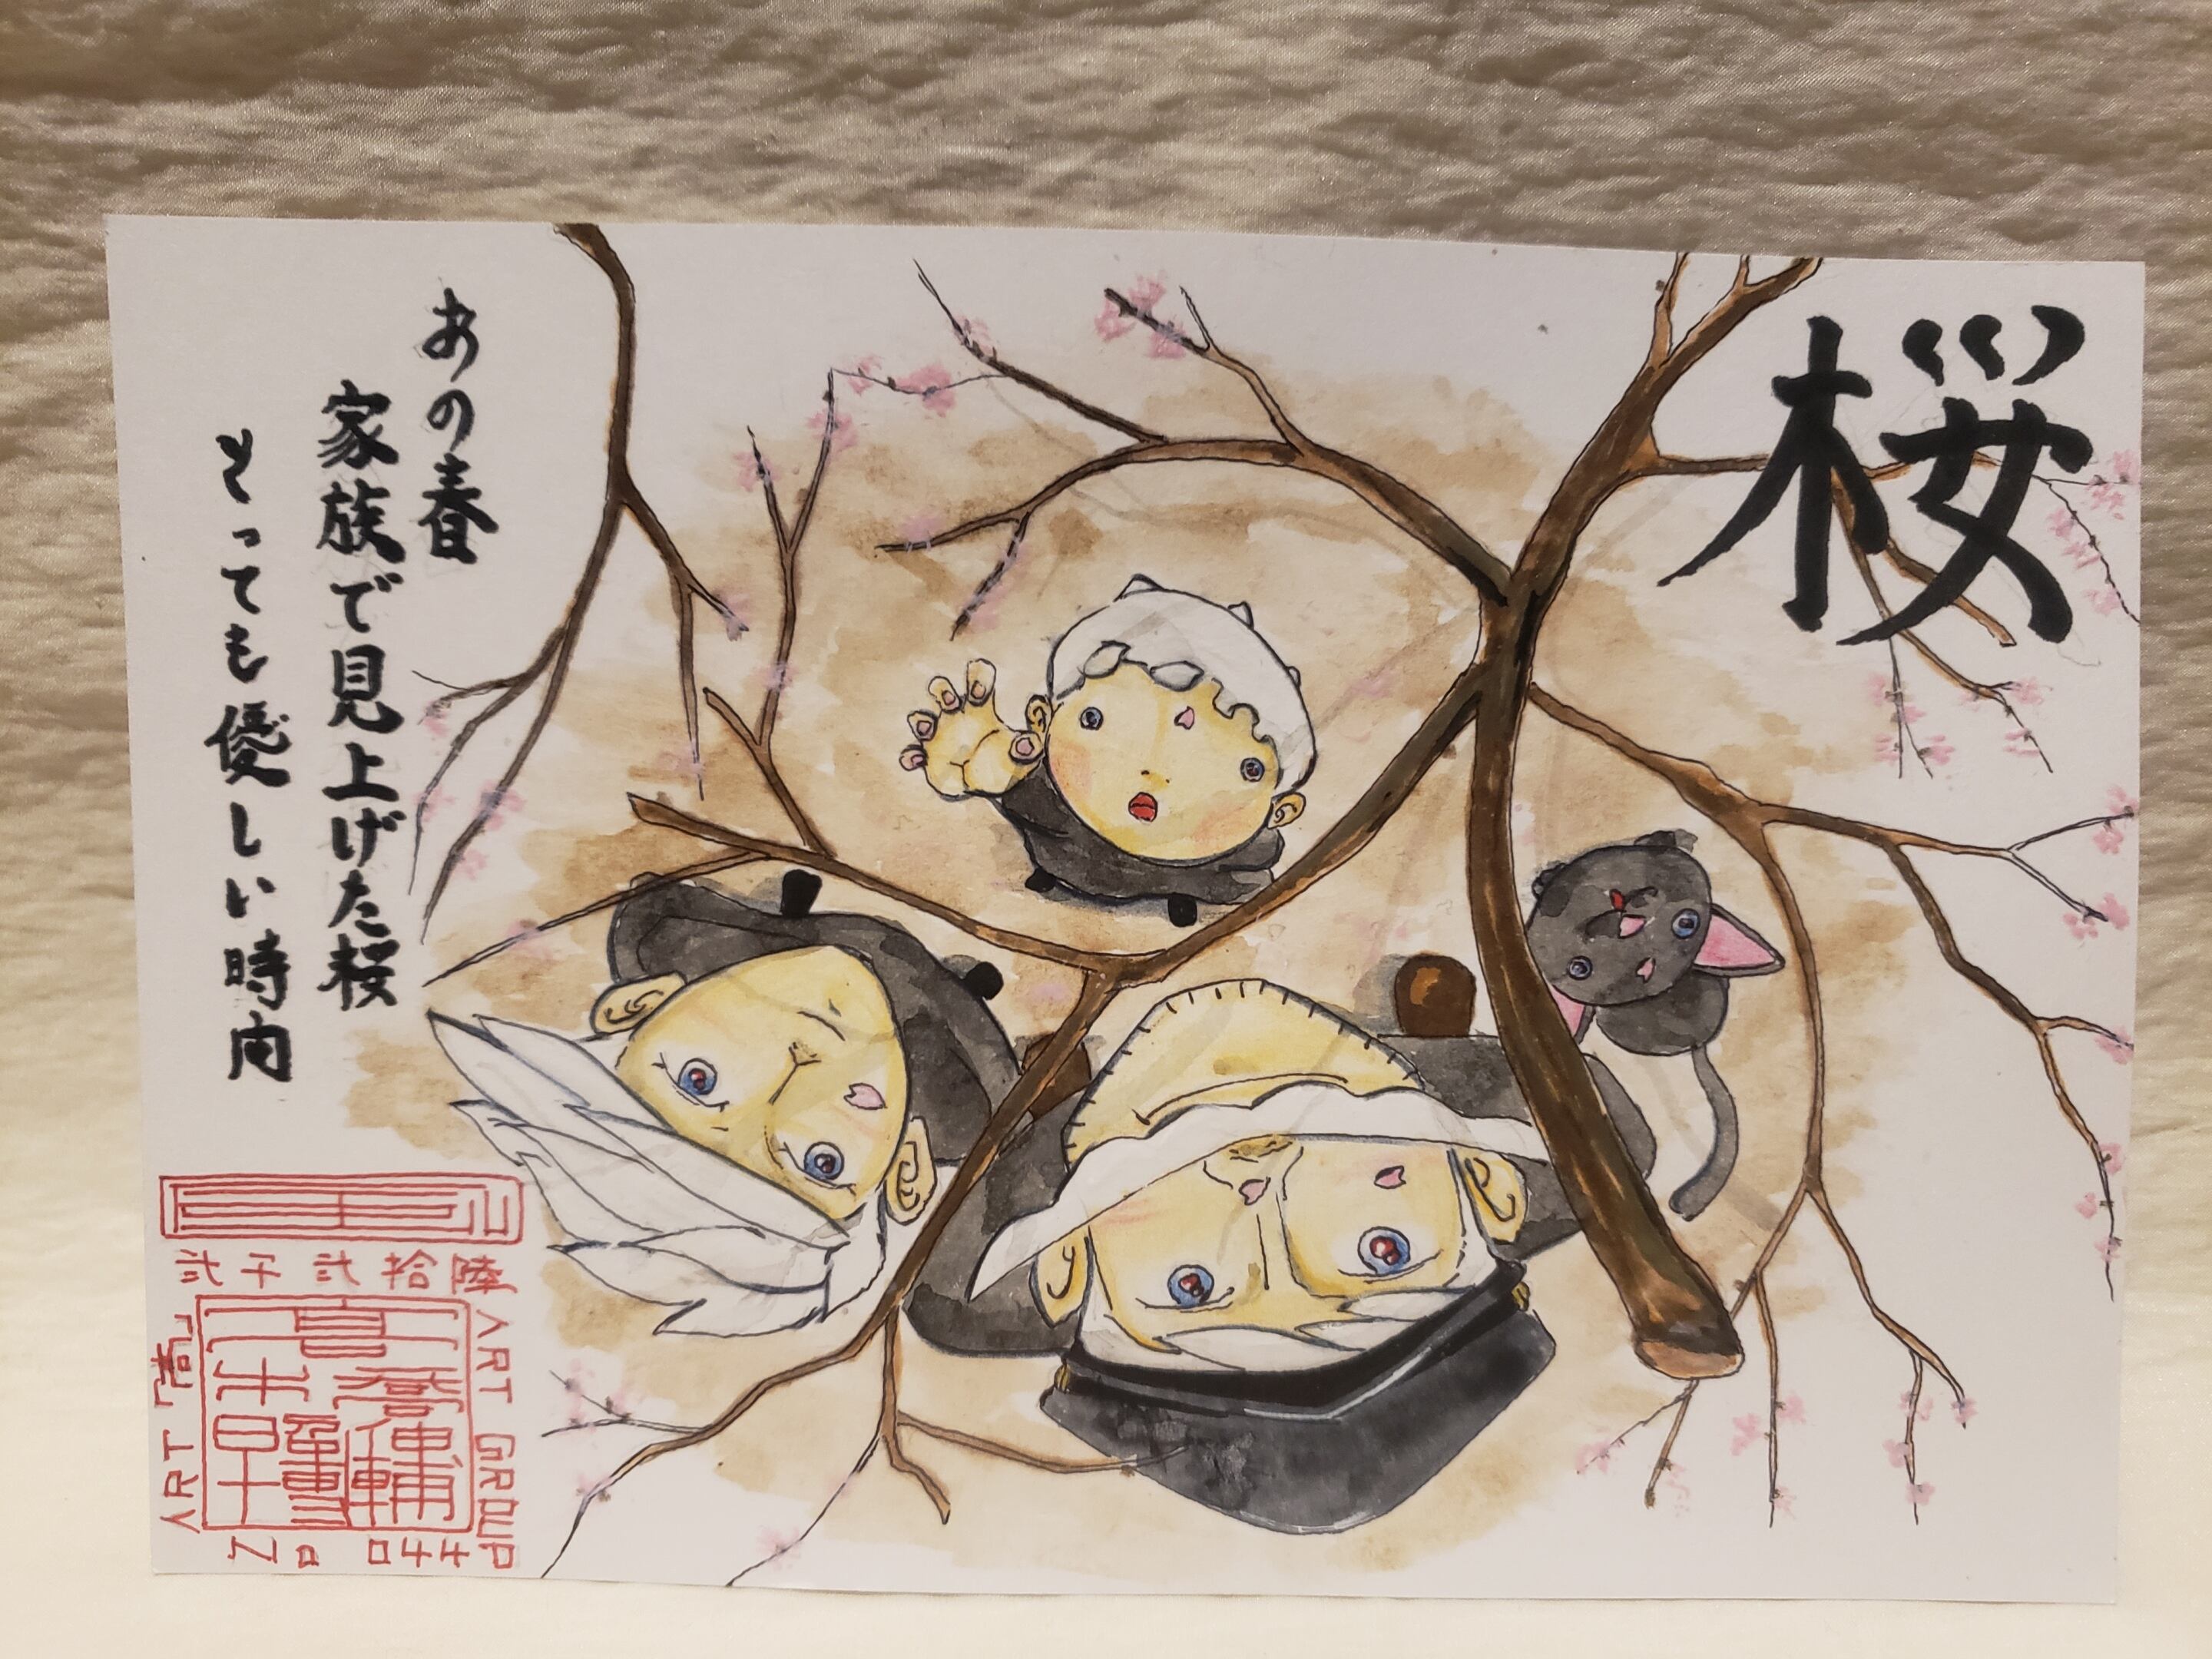 桜
あの春
家族で見上げた桜
とっても優しい時間
弐千弐拾陸
ART GROUP
ART
No 044